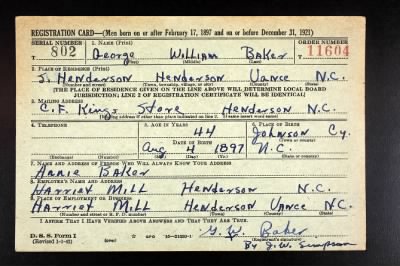 REGISTRATION CARD—(Men born on or after February 17, 1897 and on or before December 31, 1921)
SERIAL NUMBER 1. NAME (Print) ORDER NUMBER
T 802 George William Baker T 11604
(First) (Middle) (Last)
2. PLACE OF RESIDENCE (Print)
S. Henderson Henderson Vance N.C.
(Number and street) (Town, township, village, or city) (County) (State)
[THE PLACE OF RESIDENCE GIVEN ON THE LINE ABOVE WILL DETERMINE LOCAL BOARD
JURISDICTION; LINE 2 OF REGISTRATION CERTIFICATE WILL BE IDENTICAL]
3. MAILING ADDRESS
C.F. Kings Store Henderson N.C.
[Mailing address if other than place indicated on line 2. If same insert word same]
4. TELEPHONE 5. AGE IN YEARS 6. PLACE OF BIRTH
44 Johnson Cy.
DATE OF BIRTH (Town or county)
Aug 4 1897 N.C.
(Exchange) (Number) (Mo.) (Day) (Yr.) (State or country)
7. NAME AND ADDRESS OF PERSON WHO WILL ALWAYS KNOW YOUR ADDRESS
Annie Baker
8. EMPLOYER'S NAME AND ADDRESS
Harriet Mill Henderson N.C.
9. PLACE OF EMPLOYMENT OR BUSINESS
Harriet Mill Henderson Vance N.C.
(Number and street or R. F. D. number) (Town) (County) (State)
I AFFIRM THAT I HAVE VERIFIED ABOVE ANSWERS AND THAT THEY ARE TRUE.
G. W. Baker
D. S. S. Form 1 (over) (Registrant's signature)
(Revised 1-1-42) By J.W. Simpson